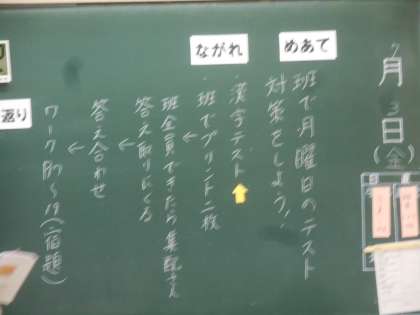 7月3日(金)
めあて
班で月曜日のテスト
対策をしよう!
ながれ
・漢字テスト
・班でプリント二枚
←
班全員できたら集配さん
答え取りにくる
←
答え合わせ
←
ワーク
(宿題)
返り